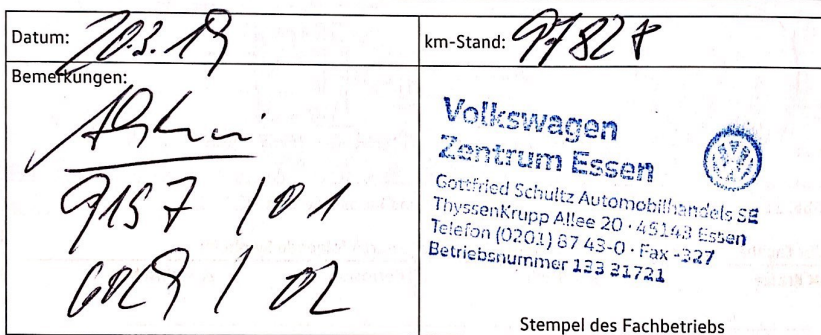 Datum: 20.3.19
km-Stand: 97827
Bemerkungen:
9157 / 01
6029 / 02
Volkswagen
Zentrum Essen
Gottfried Schultz Automobilhandels SE
ThyssenKrupp Allee 20 · 45143 Essen
Telefon (0201) 87 43-0 · Fax -327
Betriebsnummer 133 31721
Stempel des Fachbetriebs